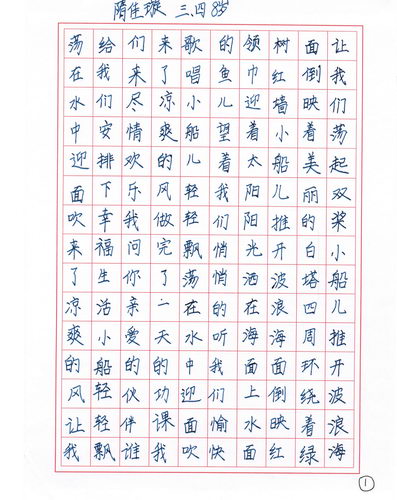 隋佳璇 三、四 8岁
让我们荡起双桨小船儿推开波浪海
面倒映着美丽的白塔四周环绕着绿
树红墙小船儿推开波浪海面倒映红
领巾迎着太阳阳光洒在海面上水面
的鱼儿望着我们悄悄的听我们愉快
歌唱小船儿轻轻飘荡在水中迎面吹
来了凉爽的风做完了一天的功课我
们来尽情欢乐我问你亲爱的伙伴谁
给我们安排下幸福生活小船轻轻飘
荡在水中迎面吹来了凉爽的风让我
①